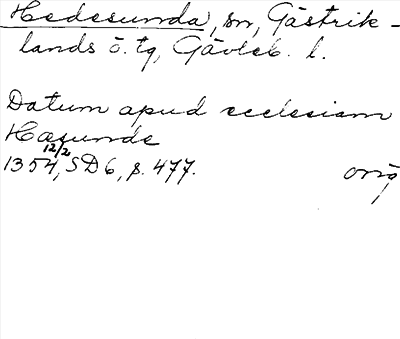 Hedesunda, sn, Gästrik-
lands ö. tg, Gävleb. l.
Datum apud ecclesiam
Hæsunde
12/2
1354, SD 6, s. 477. orig